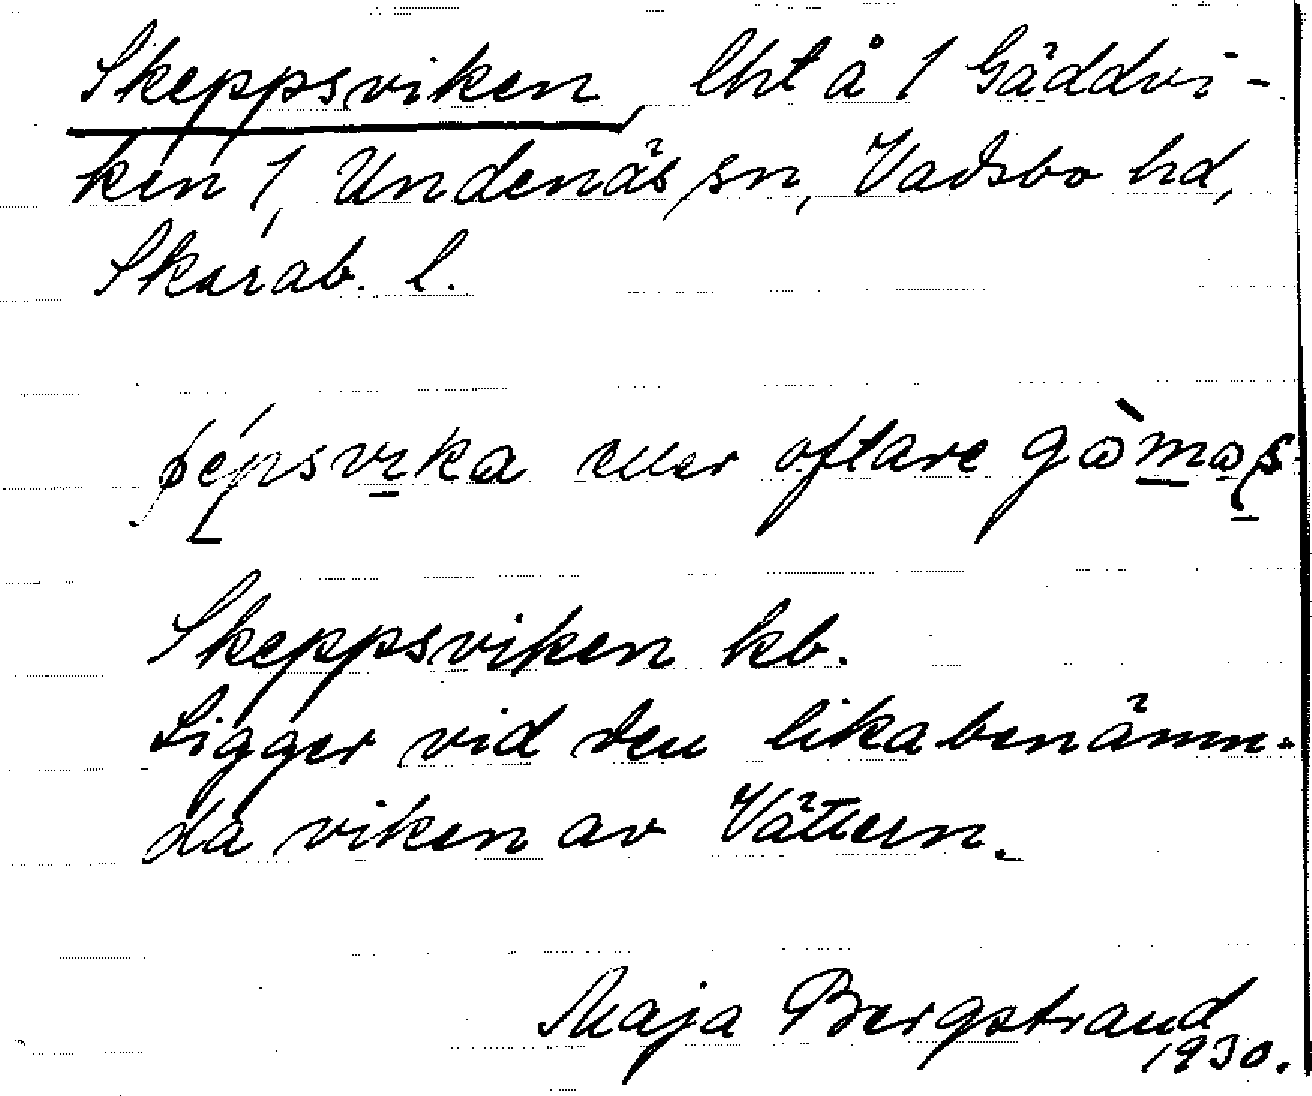 Skeppsviken, lht å 1 Gäddvi-
ken 1, Undenäs sn, Vadsbo hd,
Skarab. l.
eller oftare
Skeppsviken kb.
Ligger vid den likabenämn-
da viken av Vättern.
Maja Bergstrand
1930.